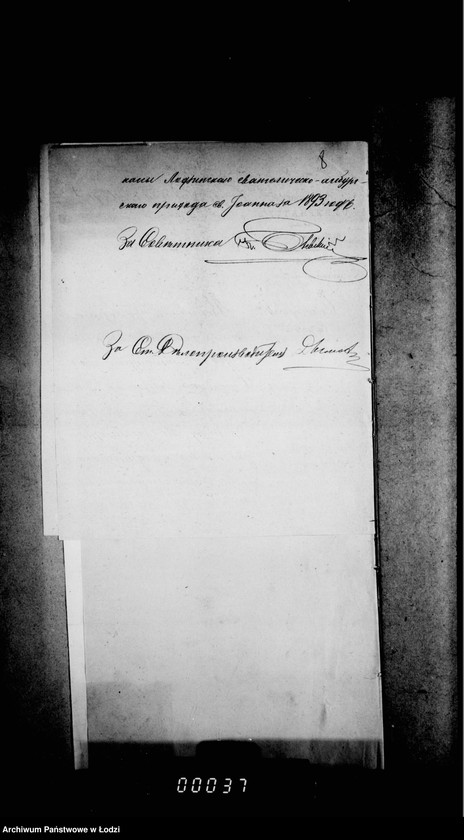 8
камы Лодзинскаго евангелическо-аугсбург-
скаго прихода св. Іоанна за 1893 годъ.
За Совѣтника
За Ст. Дѣлопроизводителя
00037
Archiwum Państwowe w Łodzi